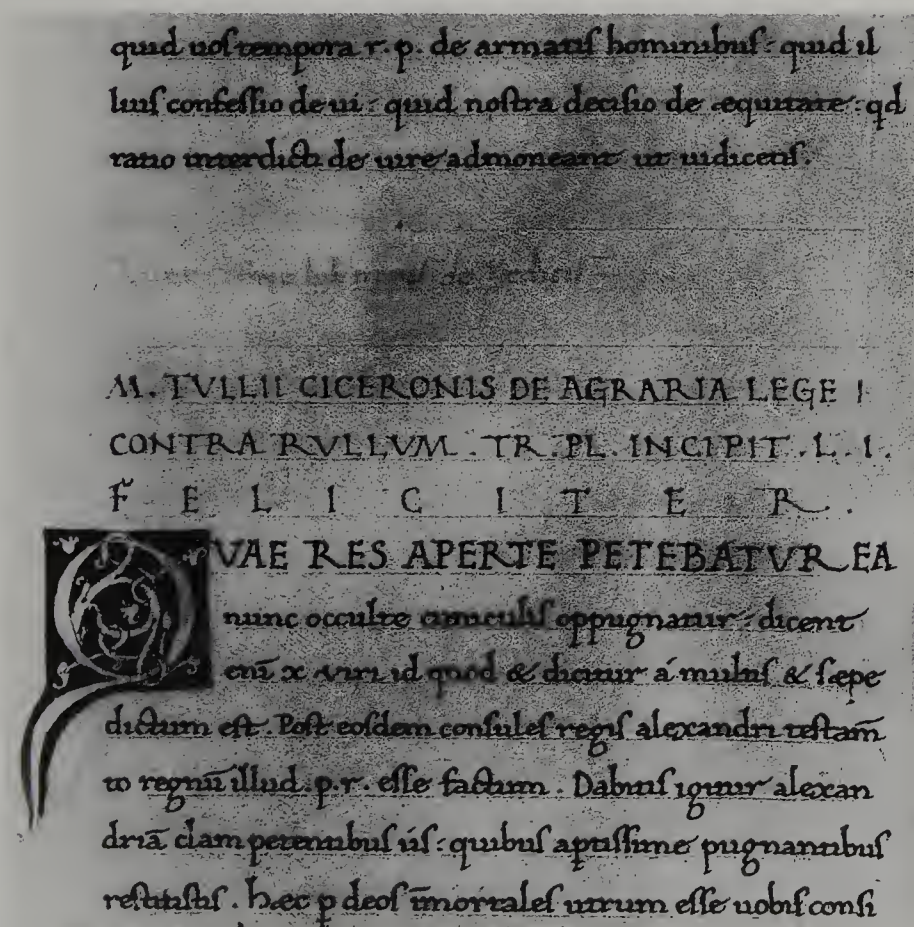 quid uoſ tempora r. p. de armatiſ hominibuſ : quid il
liuſ confeſſio de ui : quid noſtra deciſio de æquitate : qd
ratio interdicti de iure admoneant ut iudicetiſ.
de
M. TVLLII CICERONIS DE AGRARIA LEGE I
CONTRA RVLLVM . TR . PL . INCIPIT . L . I .
F E L I C I T E R .
QVAE RES APERTE PETEBATVR EA
nunc occulte cuniculiſ oppugnatur : dicent
eni͂ x uiri id quod & dicitur á multiſ & ſæpe
dictum eſt . Poſt eoſdem conſuleſ regiſ alexandri teſtam̄
to regnū illud . p . r . eſſe factum . Dabitiſ igitur alexan
driā clam petentibuſ iiſ : quibuſ aptiſſime pugnantibuſ
reſtitiſtiſ . hæc p deoſ īmortaleſ utrum eſſe uobiſ conſi